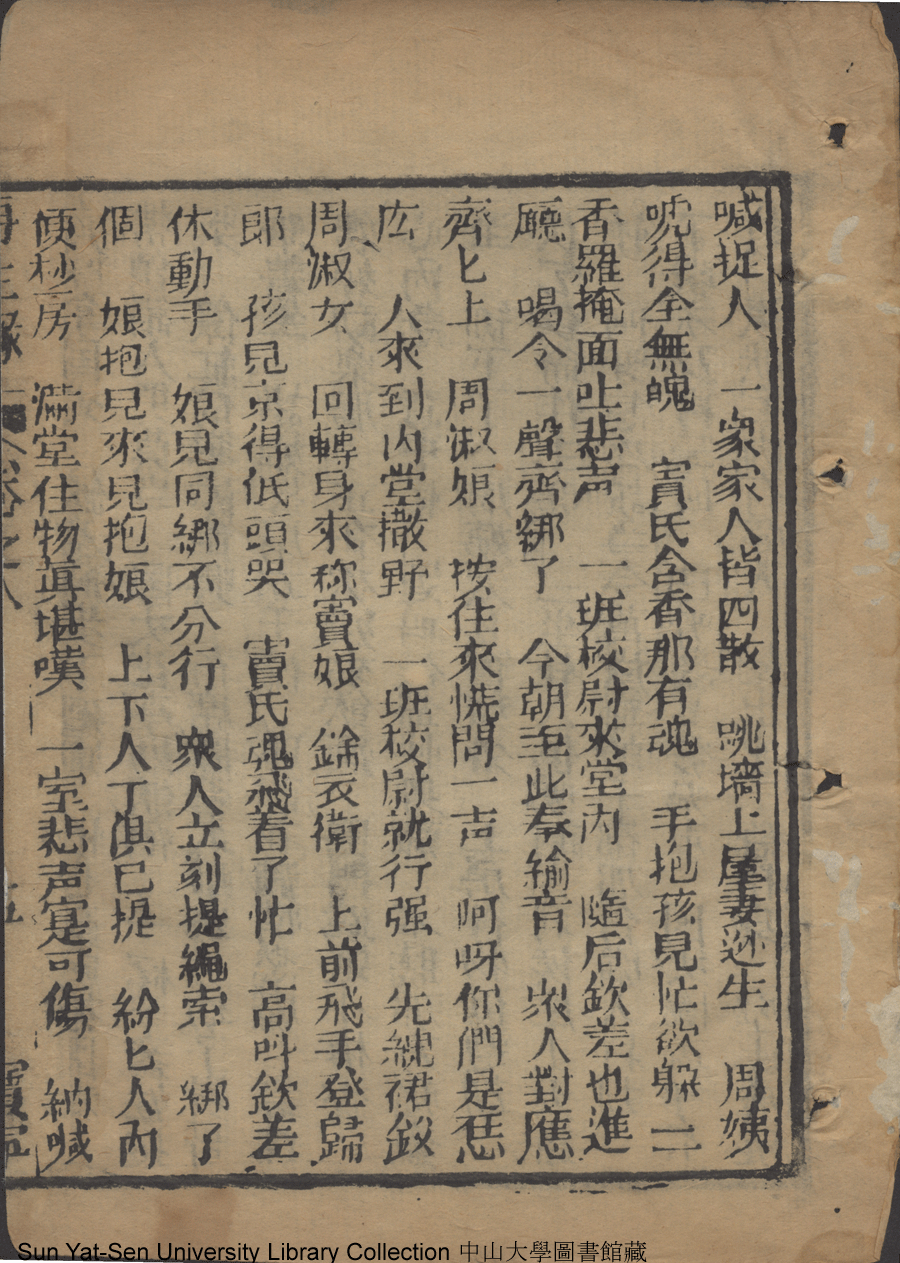 喊捉人　一家家人皆四散　跳墻上屋妻逃生　周姨
唬得全無魄　竇氏含香那有魂　手抱孩兒忙欲躲　二
香羅掩面吐悲声　一班校尉來堂內　隨后欽差也進
廳　喝令一聲齊綁了　今朝至此奉綸音　衆人對應
齊匕上　周淑娘　按住來慌問一声　呵呀你們是恁
広　人來到內堂撒野　一班校尉就行强　先綂裙釵
周淑女　回轉身來称竇娘　錦衣衛　上前飛手登歸
郎　孩兒京得低頭哭　竇氏魂飛着了忙　高叫欽差
休動手　娘兒同綁不分行　衆人立刻提繩索　綁了
個　娘抱兒來兒抱娘　上下人丁俱已提　紛匕人內
便抄房　滿堂住物真堪嘆　一室悲声寔可傷　納喊
再生緣　卷之八